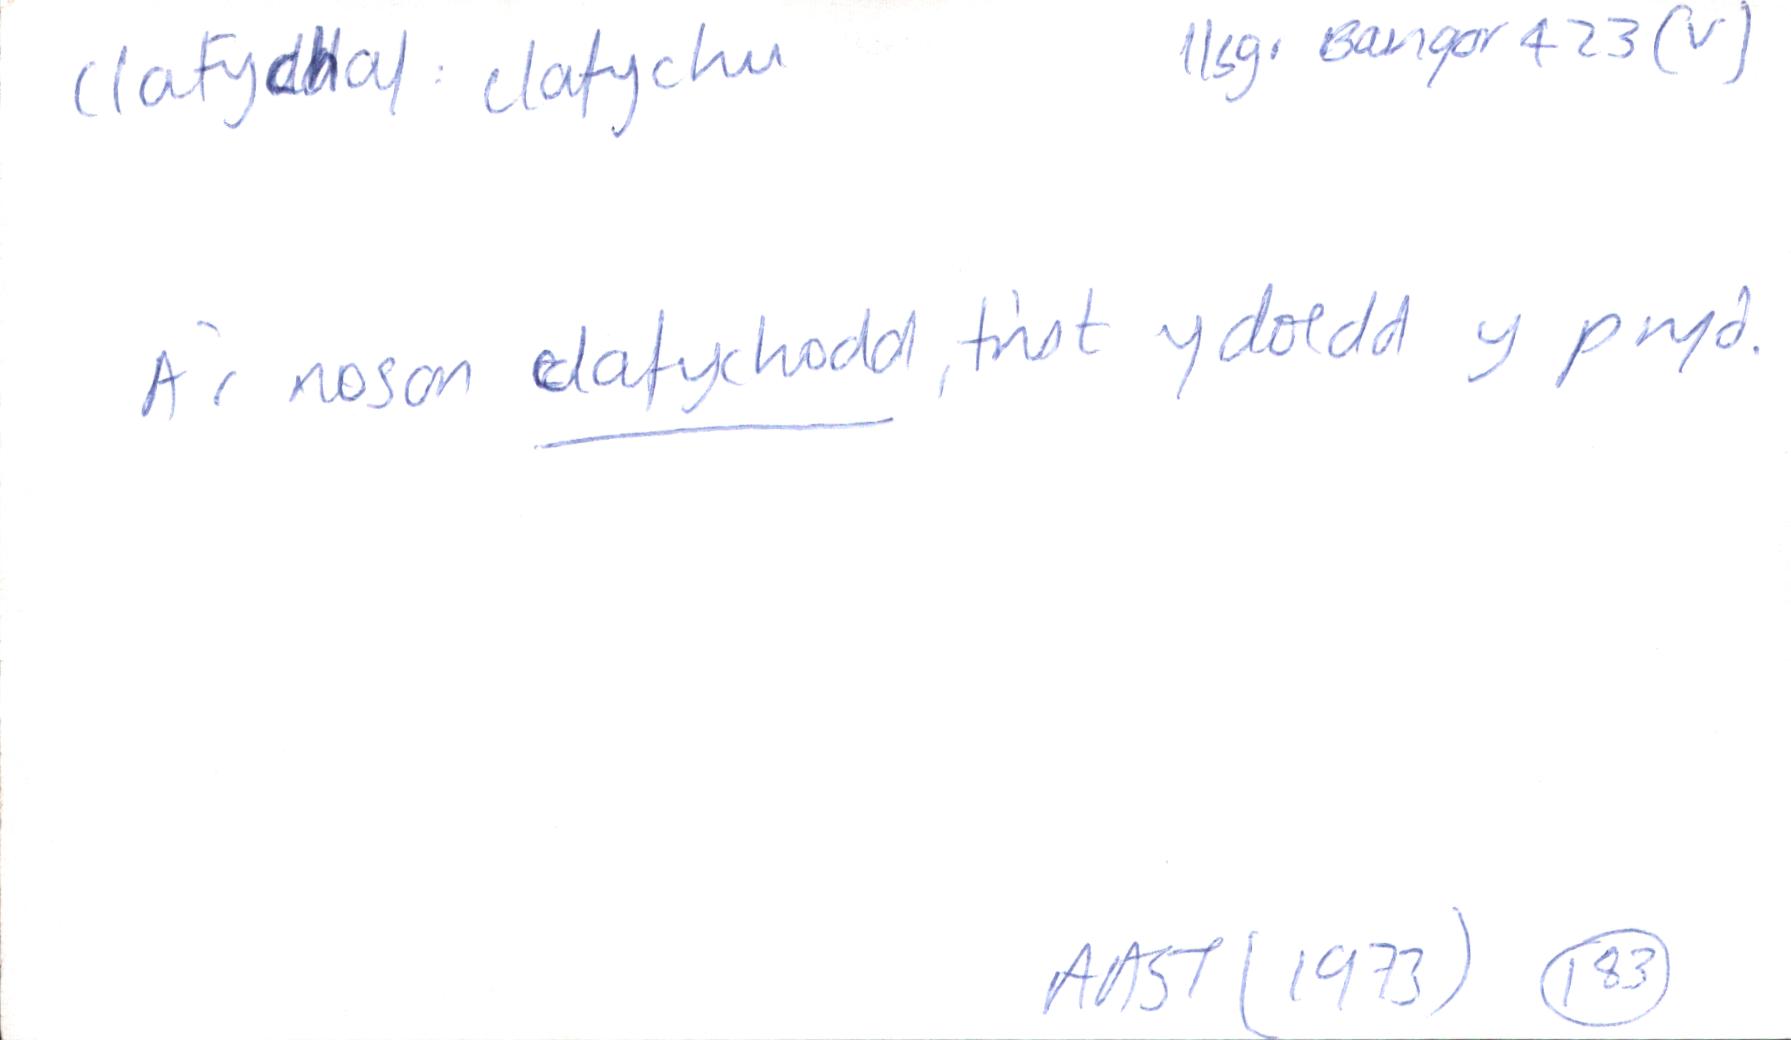 clafychaf: clafychu llsg. Bangor 423 (V)
A'r noson clafychodd, trist ydoedd y pryd.
AAST (1973) 183